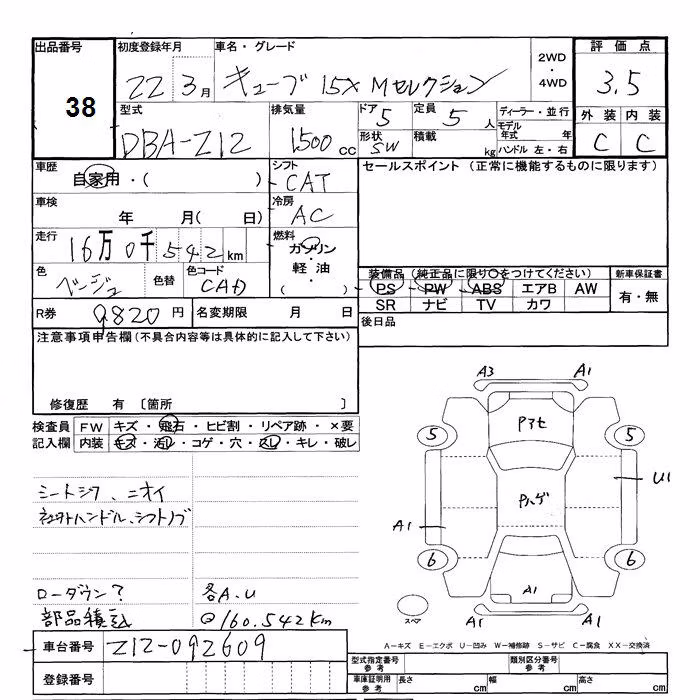 出品番号 初度登録年月 車名・グレード 2WD ・ 4WD 評価点
38 22 3月 キューブ 15X Mセレクション 3.5
型式 排気量 ドア 5 定員 5人 ディーラー・並行 外装 内装
DBA-Z12 1500cc 形状 SW 積載 kg モデル年式 年 ハンドル 左・右 C C
車歴 自家用・( ) シフト CAT セールスポイント (正常に機能するものに限ります)
車検 年 月( 日) 冷房 AC
走行 16万0千542km 燃料 ガソリン・軽油・( )
色 ベージュ 色替 色コード CAD 装備品(純正品に限り○をつけてください) 新車保証書
PS PW ABS エアB AW 有・無
SR ナビ TV カワ
R券 9820円 名変期限 月 日 後日品
注意事項申告欄(不具合内容等は具体的に記入して下さい)
修復歴 有 〔箇所 〕
検査員 FW キズ・飛石・ヒビ割・リペア跡・×要
記入欄 内装 キズ・汚レ・コゲ・穴・スレ・キレ・破レ
A3 A1
Pアセ
5 5
Pハゲ U1
A1
6 6
A1
スペア A1 A1
シートシワ、ニオイ
社外ハンドル、シフトノブ
ローダウン? 各A.U
部品積込 @160.542km
車台番号 Z12-092609
登録番号
A－キズ E－エクボ U－凹み W－補修跡 S－サビ C－腐食 XX－交換済
型式指定番号 参考 類別区分番号 参考
車庫証明用 参考 長さ cm 幅 cm 高さ cm